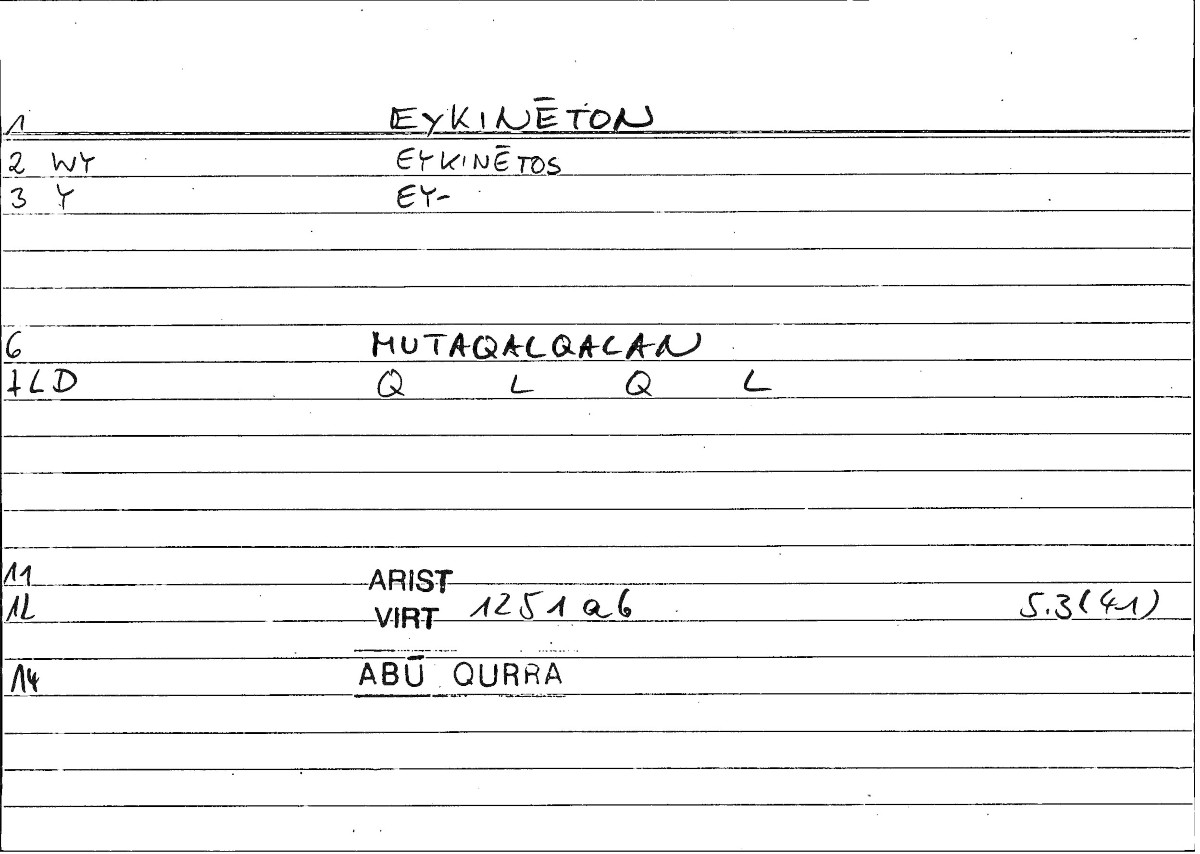 1 EYKINĒTON
2 WY EYKINĒTOS
3 Y EY-
6 MUTAQALQALAN
7LD Q L Q L
11 ARIST
12 VIRT 1251 a6 5.3(41)
14 ABŪ QURRA